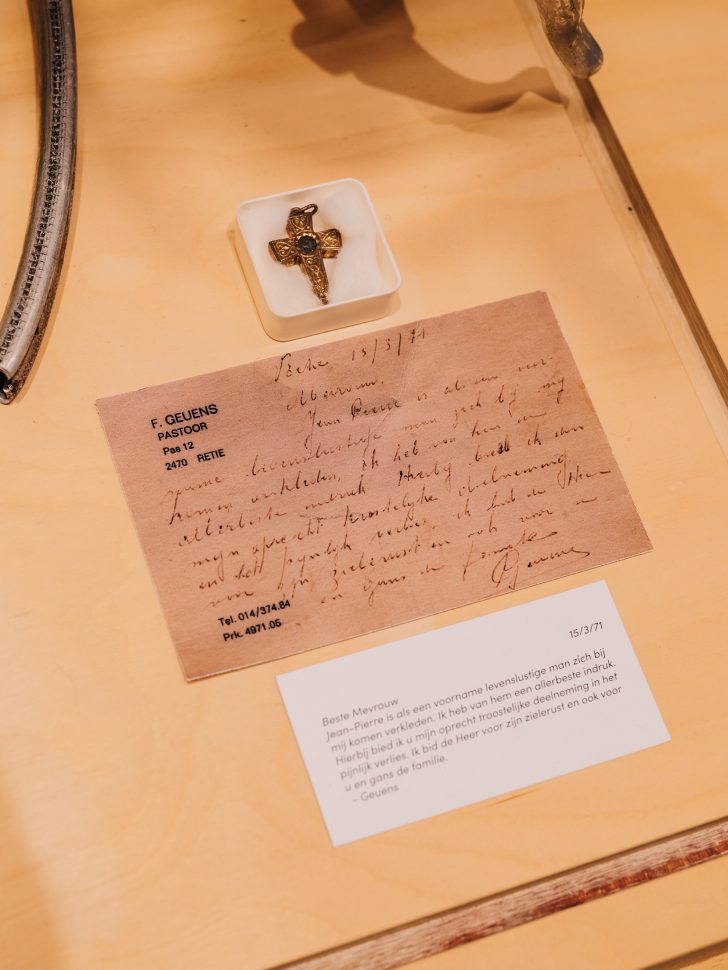 Retie, 15/3/71
Mevrouw,
F. GEUENS
PASTOOR
Pas 12
2470 RETIE
Jean Pierre is als een voor-
name levenslustige man zich bij mij
komen verkleden, Ik heb van hem een
allerbeste indruk Hierbij bied ik u
mijn oprecht troostelijke deelneming
en het pijnlijk verlies, ik bid de Heer
voor zijn zielerust en ook voor u
en gans de familie
Geuens
Tel. 014/374.84
Prk. 4971.05
15/3/71
Beste Mevrouw
Jean-Pierre is als een voorname levenslustige man zich bij
mij komen verkleden. Ik heb van hem een allerbeste indruk.
Hierbij bied ik u mijn oprecht troostelijke deelneming in het
pijnlijk verlies. Ik bid de Heer voor zijn zielerust en ook voor
u en gans de familie.
- Geuens